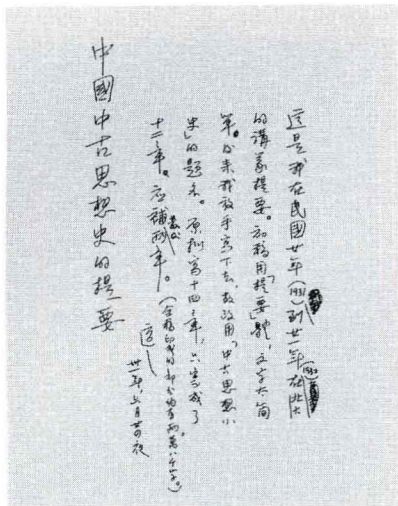 這是我在民國廿年(1931)到廿一年(1932)在北大
的講義提要。初稿用「提要」體,文字太簡
單。後來我放手寫下去,故改用「中古思想小
史」的題名。原擬寫十四章,只寫成了
十二章。應補兩章。
(全稿印成的部分約有兩萬八千字。)
適
卅一年,月廿夜
中國中古思想史的提要